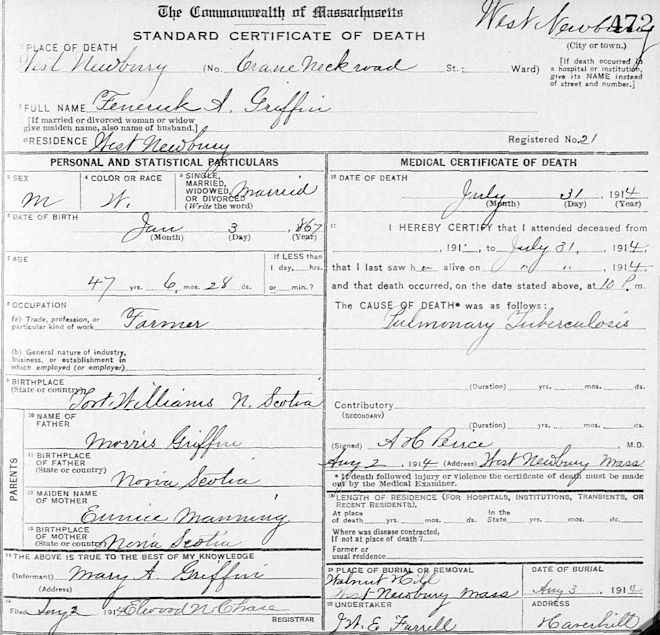 The Commonwealth of Massachusetts
West Newbury 472
STANDARD CERTIFICATE OF DEATH
(City or town.)
1 PLACE OF DEATH
West Newbury (No. Crane Neck road St.; Ward)
[If death occurred in a hospital or institution, give its NAME instead of street and number.]
2 FULL NAME A. Griffin
[If married or divorced woman or widow give maiden name, also name of husband.]
RESIDENCE West Newbury
Registered No. 21
PERSONAL AND STATISTICAL PARTICULARS
3 SEX
M
4 COLOR OR RACE
W.
5 SINGLE, MARRIED, WIDOWED, OR DIVORCED
(Write the word)
Married
6 DATE OF BIRTH
Jan 3, 1867
(Month) (Day) (Year)
7 AGE
47 yrs. 6 mos. 28 ds.
If LESS than
1 day, hrs.
or min.?
8 OCCUPATION
(a) Trade, profession, or
particular kind of work
Farmer
(b) General nature of industry,
business, or establishment in
which employed (or employer)
9 BIRTHPLACE
(State or country)
Port Williams N. Scotia
PARENTS
10 NAME OF
FATHER
Morris Griffin
11 BIRTHPLACE
OF FATHER
(State or country)
Nova Scotia
12 MAIDEN NAME
OF MOTHER
Eunice Manning
13 BIRTHPLACE
OF MOTHER
(State or country)
Nova Scotia
14 THE ABOVE IS TRUE TO THE BEST OF MY KNOWLEDGE
(Informant) Mary A. Griffin
(Address)
15
Filed Aug 2 1914 Elwood N. Chase
REGISTRAR
MEDICAL CERTIFICATE OF DEATH
16 DATE OF DEATH
July 31, 1914
(Month) (Day) (Year)
17 I HEREBY CERTIFY that I attended deceased from
, 191 , to July 31, 1914,
that I last saw h alive on " " , 1914,
and that death occurred, on the date stated above, at 10 P.m.
The CAUSE OF DEATH* was as follows:
Pulmonary Tuberculosis
(Duration) yrs. mos. ds.
Contributory
(SECONDARY)
(Duration) yrs. mos. ds.
(Signed) A H Peirce M.D.
Aug 2, 1914 (Address) West Newbury Mass
* If death followed injury or violence the certificate of death must be made
out by the Medical Examiner.
18 LENGTH OF RESIDENCE (FOR HOSPITALS, INSTITUTIONS, TRANSIENTS, OR
RECENT RESIDENTS).
At place
of death yrs. mos. ds.
In the
State yrs. mos. ds.
Where was disease contracted,
If not at place of death?
Former or
usual residence
19 PLACE OF BURIAL OR REMOVAL
Walnut Hill
West Newbury Mass
DATE OF BURIAL
Aug 3, 1914
20 UNDERTAKER
E. Farrell
ADDRESS
Haverhill